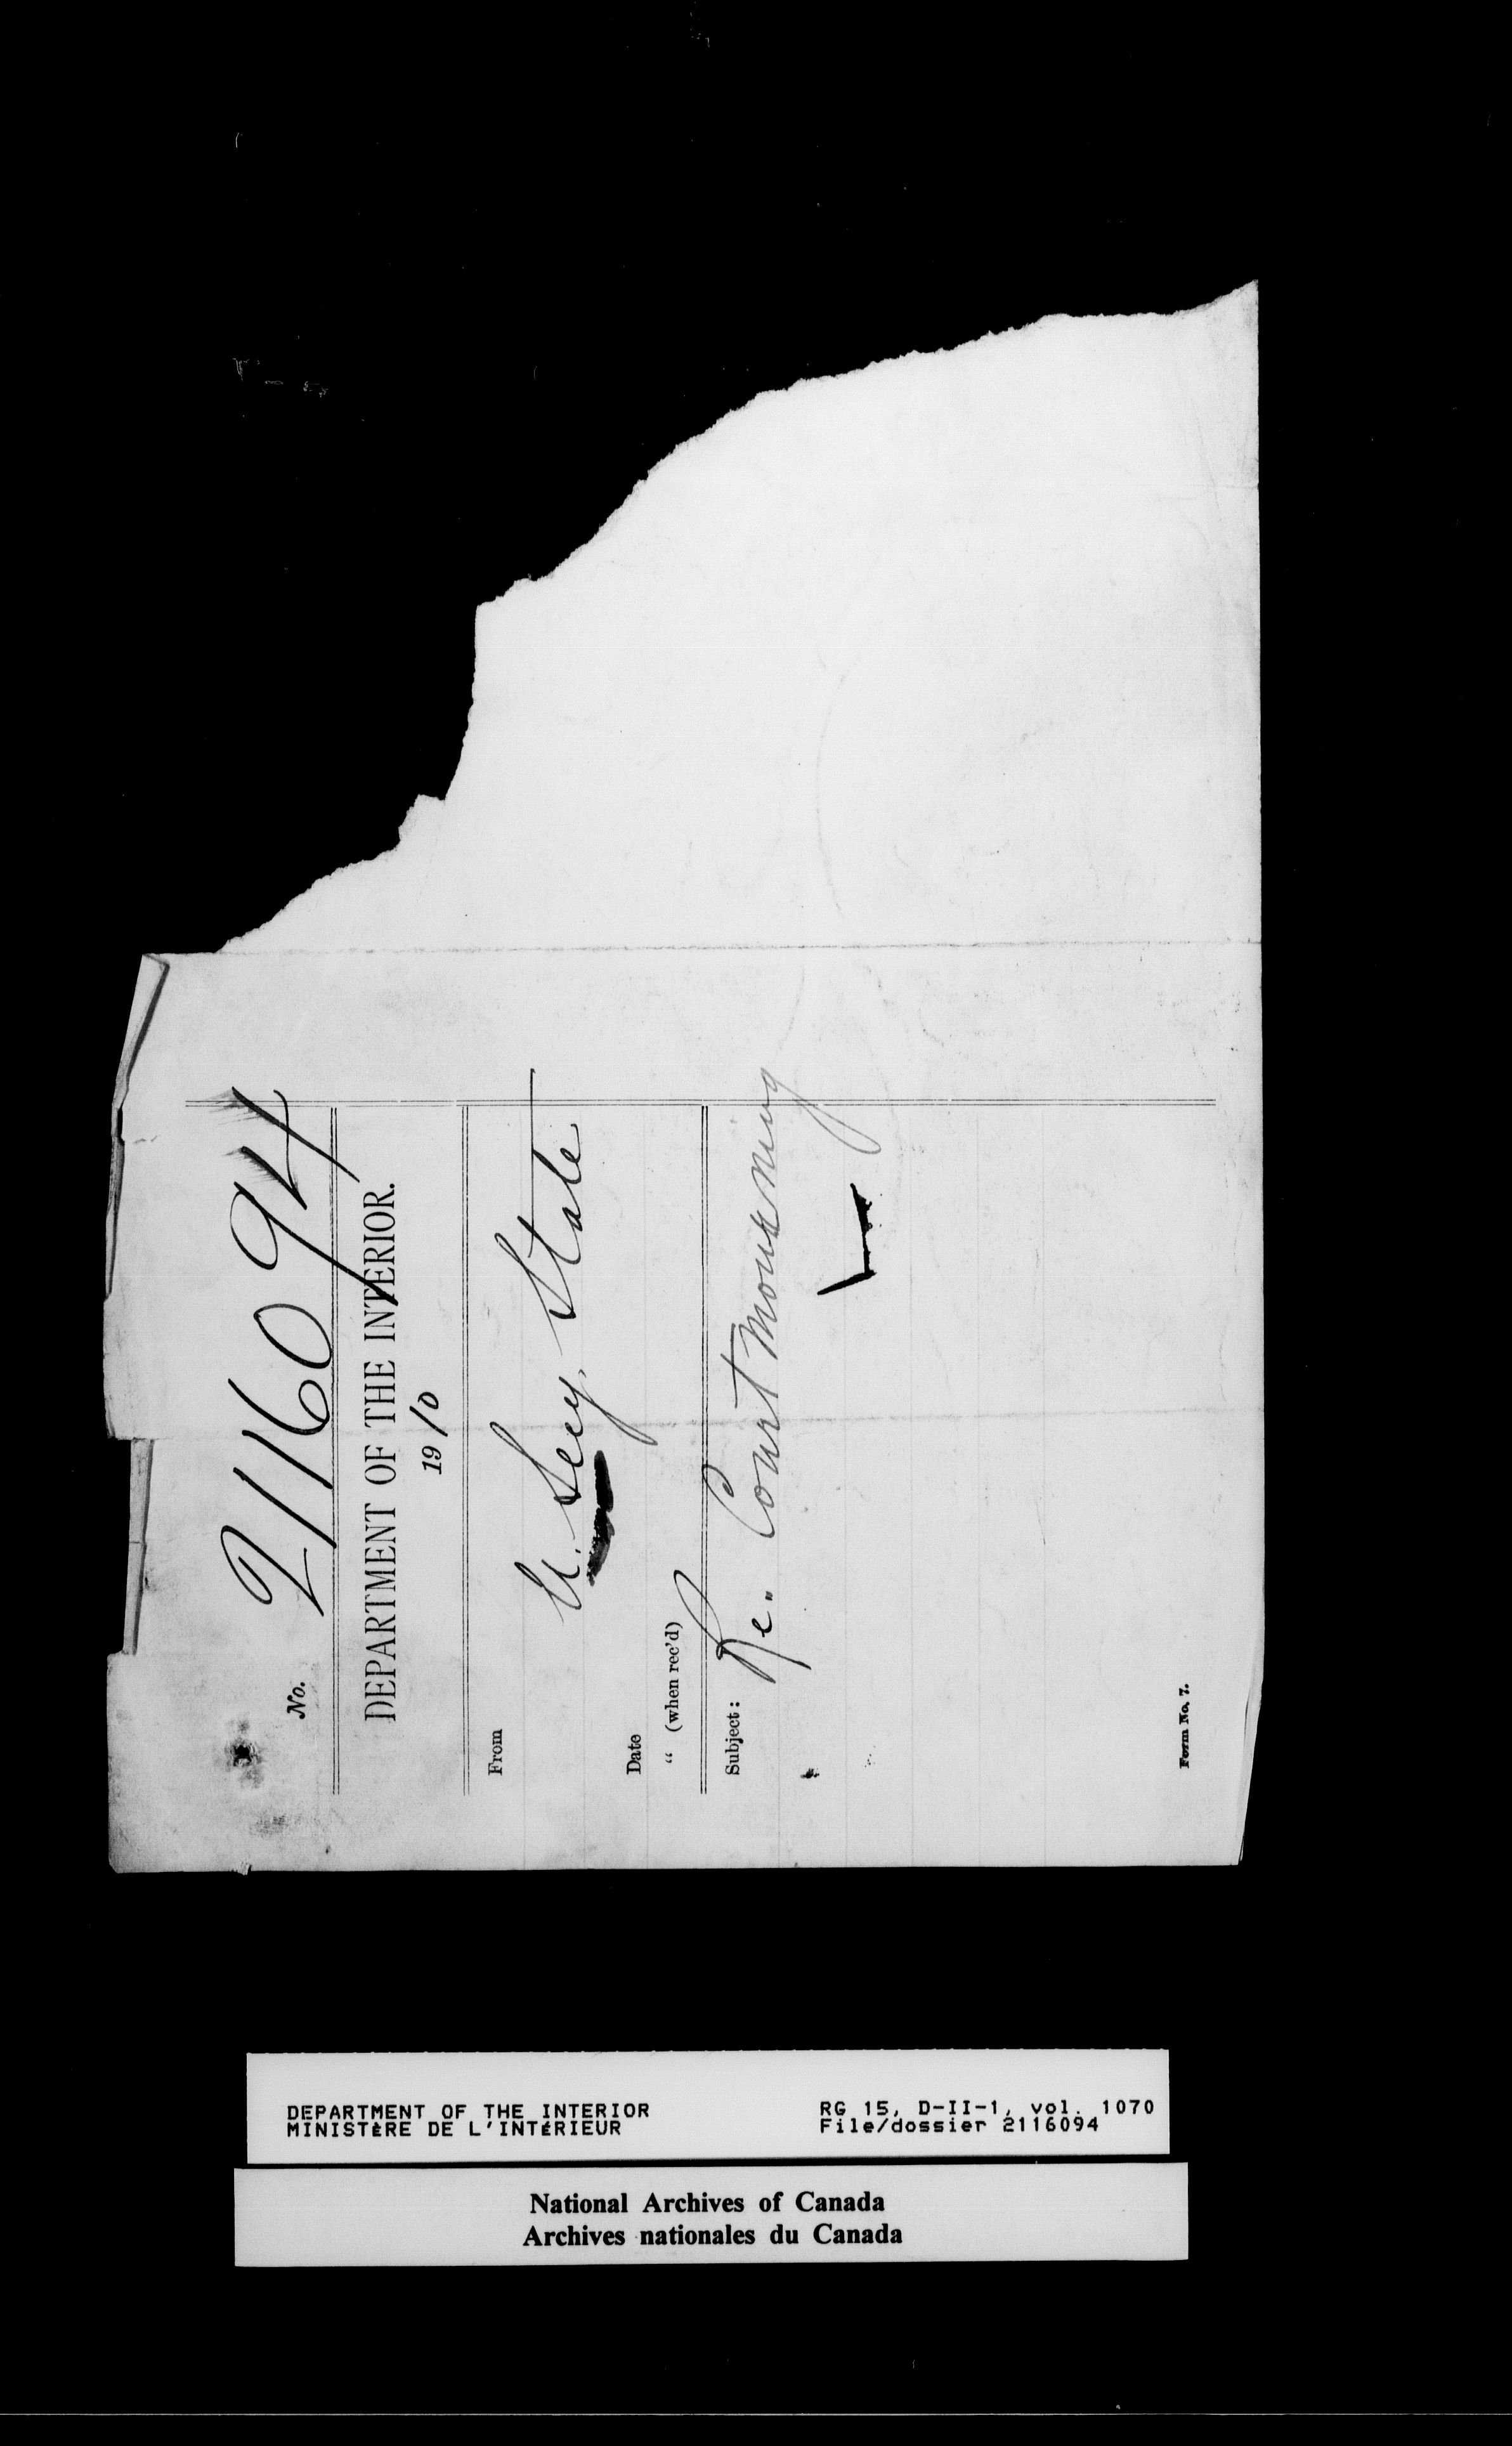 No. 2116094
DEPARTMENT OF THE INTERIOR.
1910
From
U. Secy. State
Date
“ (when rec'd)
Subject: Re. Court Mourning
Form No. 7.
DEPARTMENT OF THE INTERIOR
MINISTÈRE DE L'INTÉRIEUR
RG 15, D-II-1, vol. 1070
File/dossier 2116094
National Archives of Canada
Archives nationales du Canada